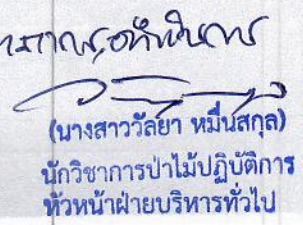 (นางสาววัลยา หมื่นสกุล)
นักวิชาการป่าไม้ปฏิบัติการ
หัวหน้าฝ่ายบริหารทั่วไป